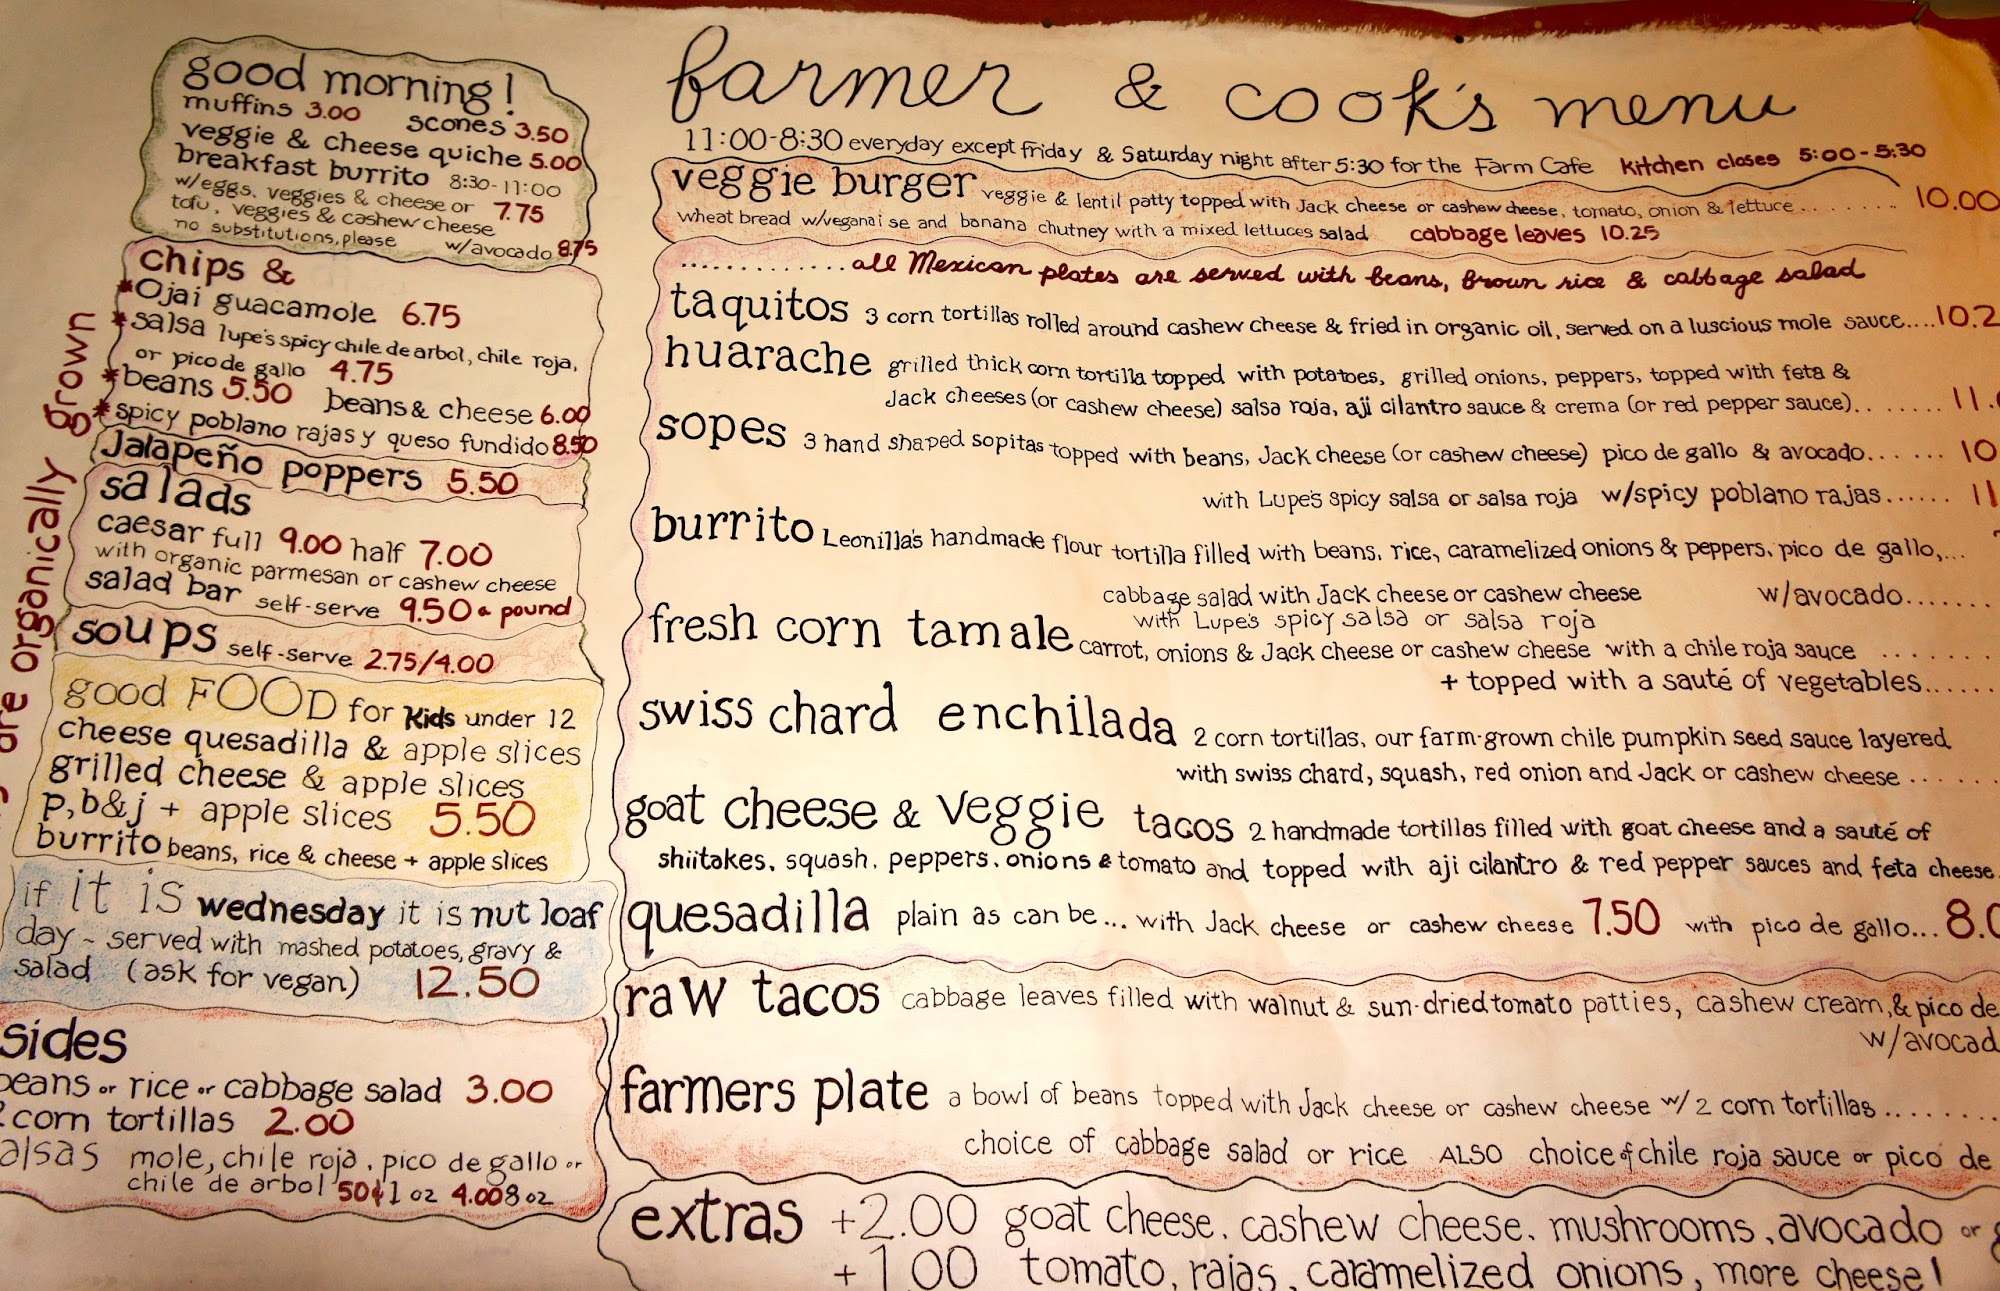 good morning!
muffins 3.00 scones 3.50
veggie & cheese quiche 5.00
breakfast burrito 8:30-11:00
w/eggs, veggies & cheese or 7.75
tofu, veggies & cashew cheese
no substitutions, please w/avocado 8.75
chips &
*Ojai guacamole 6.75
*salsa lupe's spicy chile de arbol, chile roja,
or pico de gallo 4.75
*beans 5.50 beans & cheese 6.00
*spicy poblano rajas y queso fundido 8.50
Jalapeño poppers 5.50
salads
caesar full 9.00 half 7.00
with organic parmesan or cashew cheese
salad bar self-serve 9.50 a pound
soups self-serve 2.75/4.00
good FOOD for kids under 12
cheese quesadilla & apple slices
grilled cheese & apple slices
p,b&j + apple slices 5.50
burrito beans, rice & cheese + apple slices
if it is wednesday it is nut loaf
day ~ served with mashed potatoes, gravy &
salad (ask for vegan) 12.50
sides
beans or rice or cabbage salad 3.00
corn tortillas 2.00
alsas mole, chile roja, pico de gallo or
chile de arbol 50¢ 1 oz 4.00 8 oz
are organically grown
farmer & cook's menu
11:00-8:30 everyday except friday & Saturday night after 5:30 for the Farm Cafe kitchen closes 5:00-5:30
veggie burger veggie & lentil patty topped with Jack cheese or cashew cheese, tomato, onion & lettuce........ 10.00
wheat bread w/veganaise and banana chutney with a mixed lettuces salad cabbage leaves 10.25
..............all Mexican plates are served with beans, brown rice & cabbage salad
taquitos 3 corn tortillas rolled around cashew cheese & fried in organic oil, served on a luscious mole sauce....10.2
huarache grilled thick corn tortilla topped with potatoes, grilled onions, peppers, topped with feta &
Jack cheeses (or cashew cheese) salsa roja, aji cilantro sauce & crema (or red pepper sauce)......... 11.
sopes 3 hand shaped sopitas topped with beans, Jack cheese (or cashew cheese) pico de gallo & avocado...... 10
with Lupe's spicy salsa or salsa roja w/spicy poblano rajas...... 11
burrito Leonilla's handmade flour tortilla filled with beans, rice, caramelized onions & peppers, pico de gallo,...
cabbage salad with Jack cheese or cashew cheese w/avocado.......
with Lupe's spicy salsa or salsa roja
fresh corn tamale carrot, onions & Jack cheese or cashew cheese with a chile roja sauce .......
+ topped with a sauté of vegetables......
swiss chard enchilada 2 corn tortillas, our farm-grown chile pumpkin seed sauce layered
with swiss chard, squash, red onion and Jack or cashew cheese ......
goat cheese & veggie tacos 2 handmade tortillas filled with goat cheese and a sauté of
shiitakes, squash, peppers, onions & tomato and topped with aji cilantro & red pepper sauces and feta cheese
quesadilla plain as can be... with Jack cheese or cashew cheese 7.50 with pico de gallo... 8.0
raw tacos cabbage leaves filled with walnut & sun-dried tomato patties, cashew cream, & pico de
w/avocad
farmers plate a bowl of beans topped with Jack cheese or cashew cheese w/ 2 corn tortillas ........
choice of cabbage salad or rice ALSO choice of chile roja sauce or pico de
extras +2.00 goat cheese, cashew cheese, mushrooms, avocado or
+1.00 tomato, rajas, caramelized onions, more cheese!